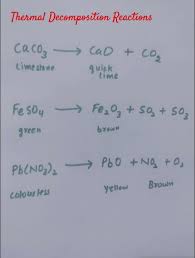 Thermal Decomposition Reactions
CaCO₃ ⟶ CaO + CO₂
Limestone quick lime
FeSO₄ ⟶ Fe₂O₃ + SO₂ + SO₃
green brown
Pb(NO₃)₂ ⟶ PbO + NO₂ + O₂
colourless yellow Brown